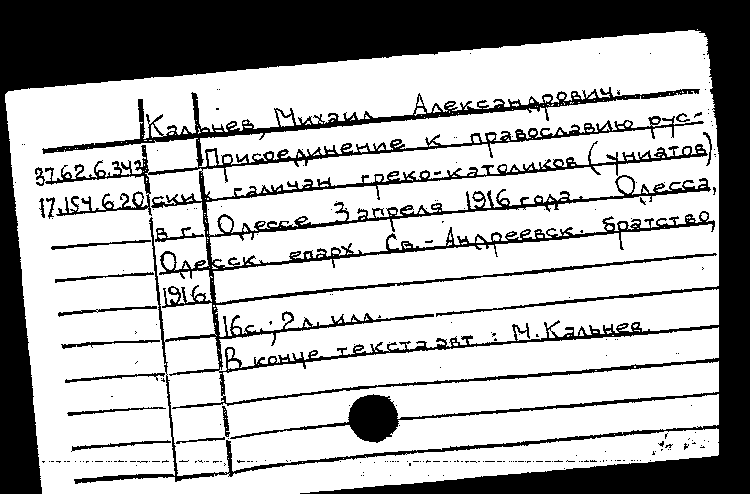 Кальнев, Михаил Александрович.
37.62.6.343 Присоединение к православию рус-
17.154.6.20 ских галичан греко-католиков (униатов)
в г. Одессе 3 апреля 1916 года. Одесса,
Одесск. епарх. Св.-Андреевск. братство,
1916.
16с.; 2л. илл.
В конце текста авт: М. Кальнев.